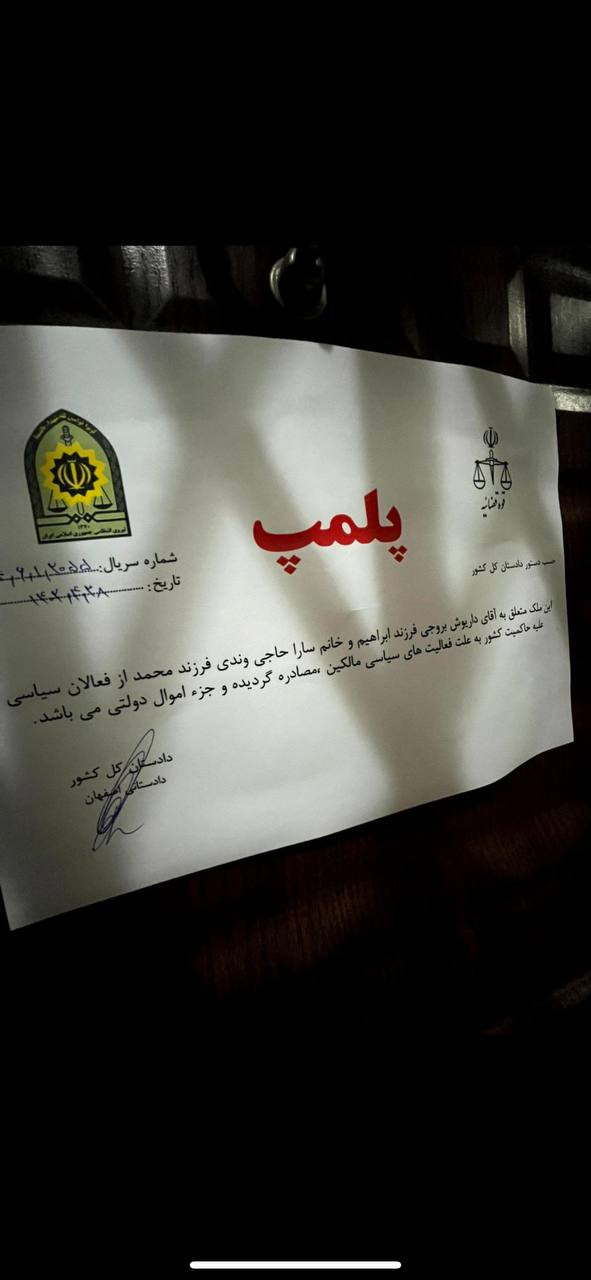 قوه قضائیه
نیروی انتظامی جمهوری اسلامی ایران
۱۳۷۰
پلمپ
شماره سریال:
تاریخ:
حسب دستور دادستان کل کشور
این ملک متعلق به آقای داریوش بروجی فرزند ابراهیم و خانم سارا حاجی وندی فرزند محمد از فعالان سیاسی
علیه حاکمیت کشور به علت فعالیت های سیاسی مالکین ،مصادره گردیده و جزء اموال دولتی می باشد.
دادستان کل کشور
دادستانی اصفهان